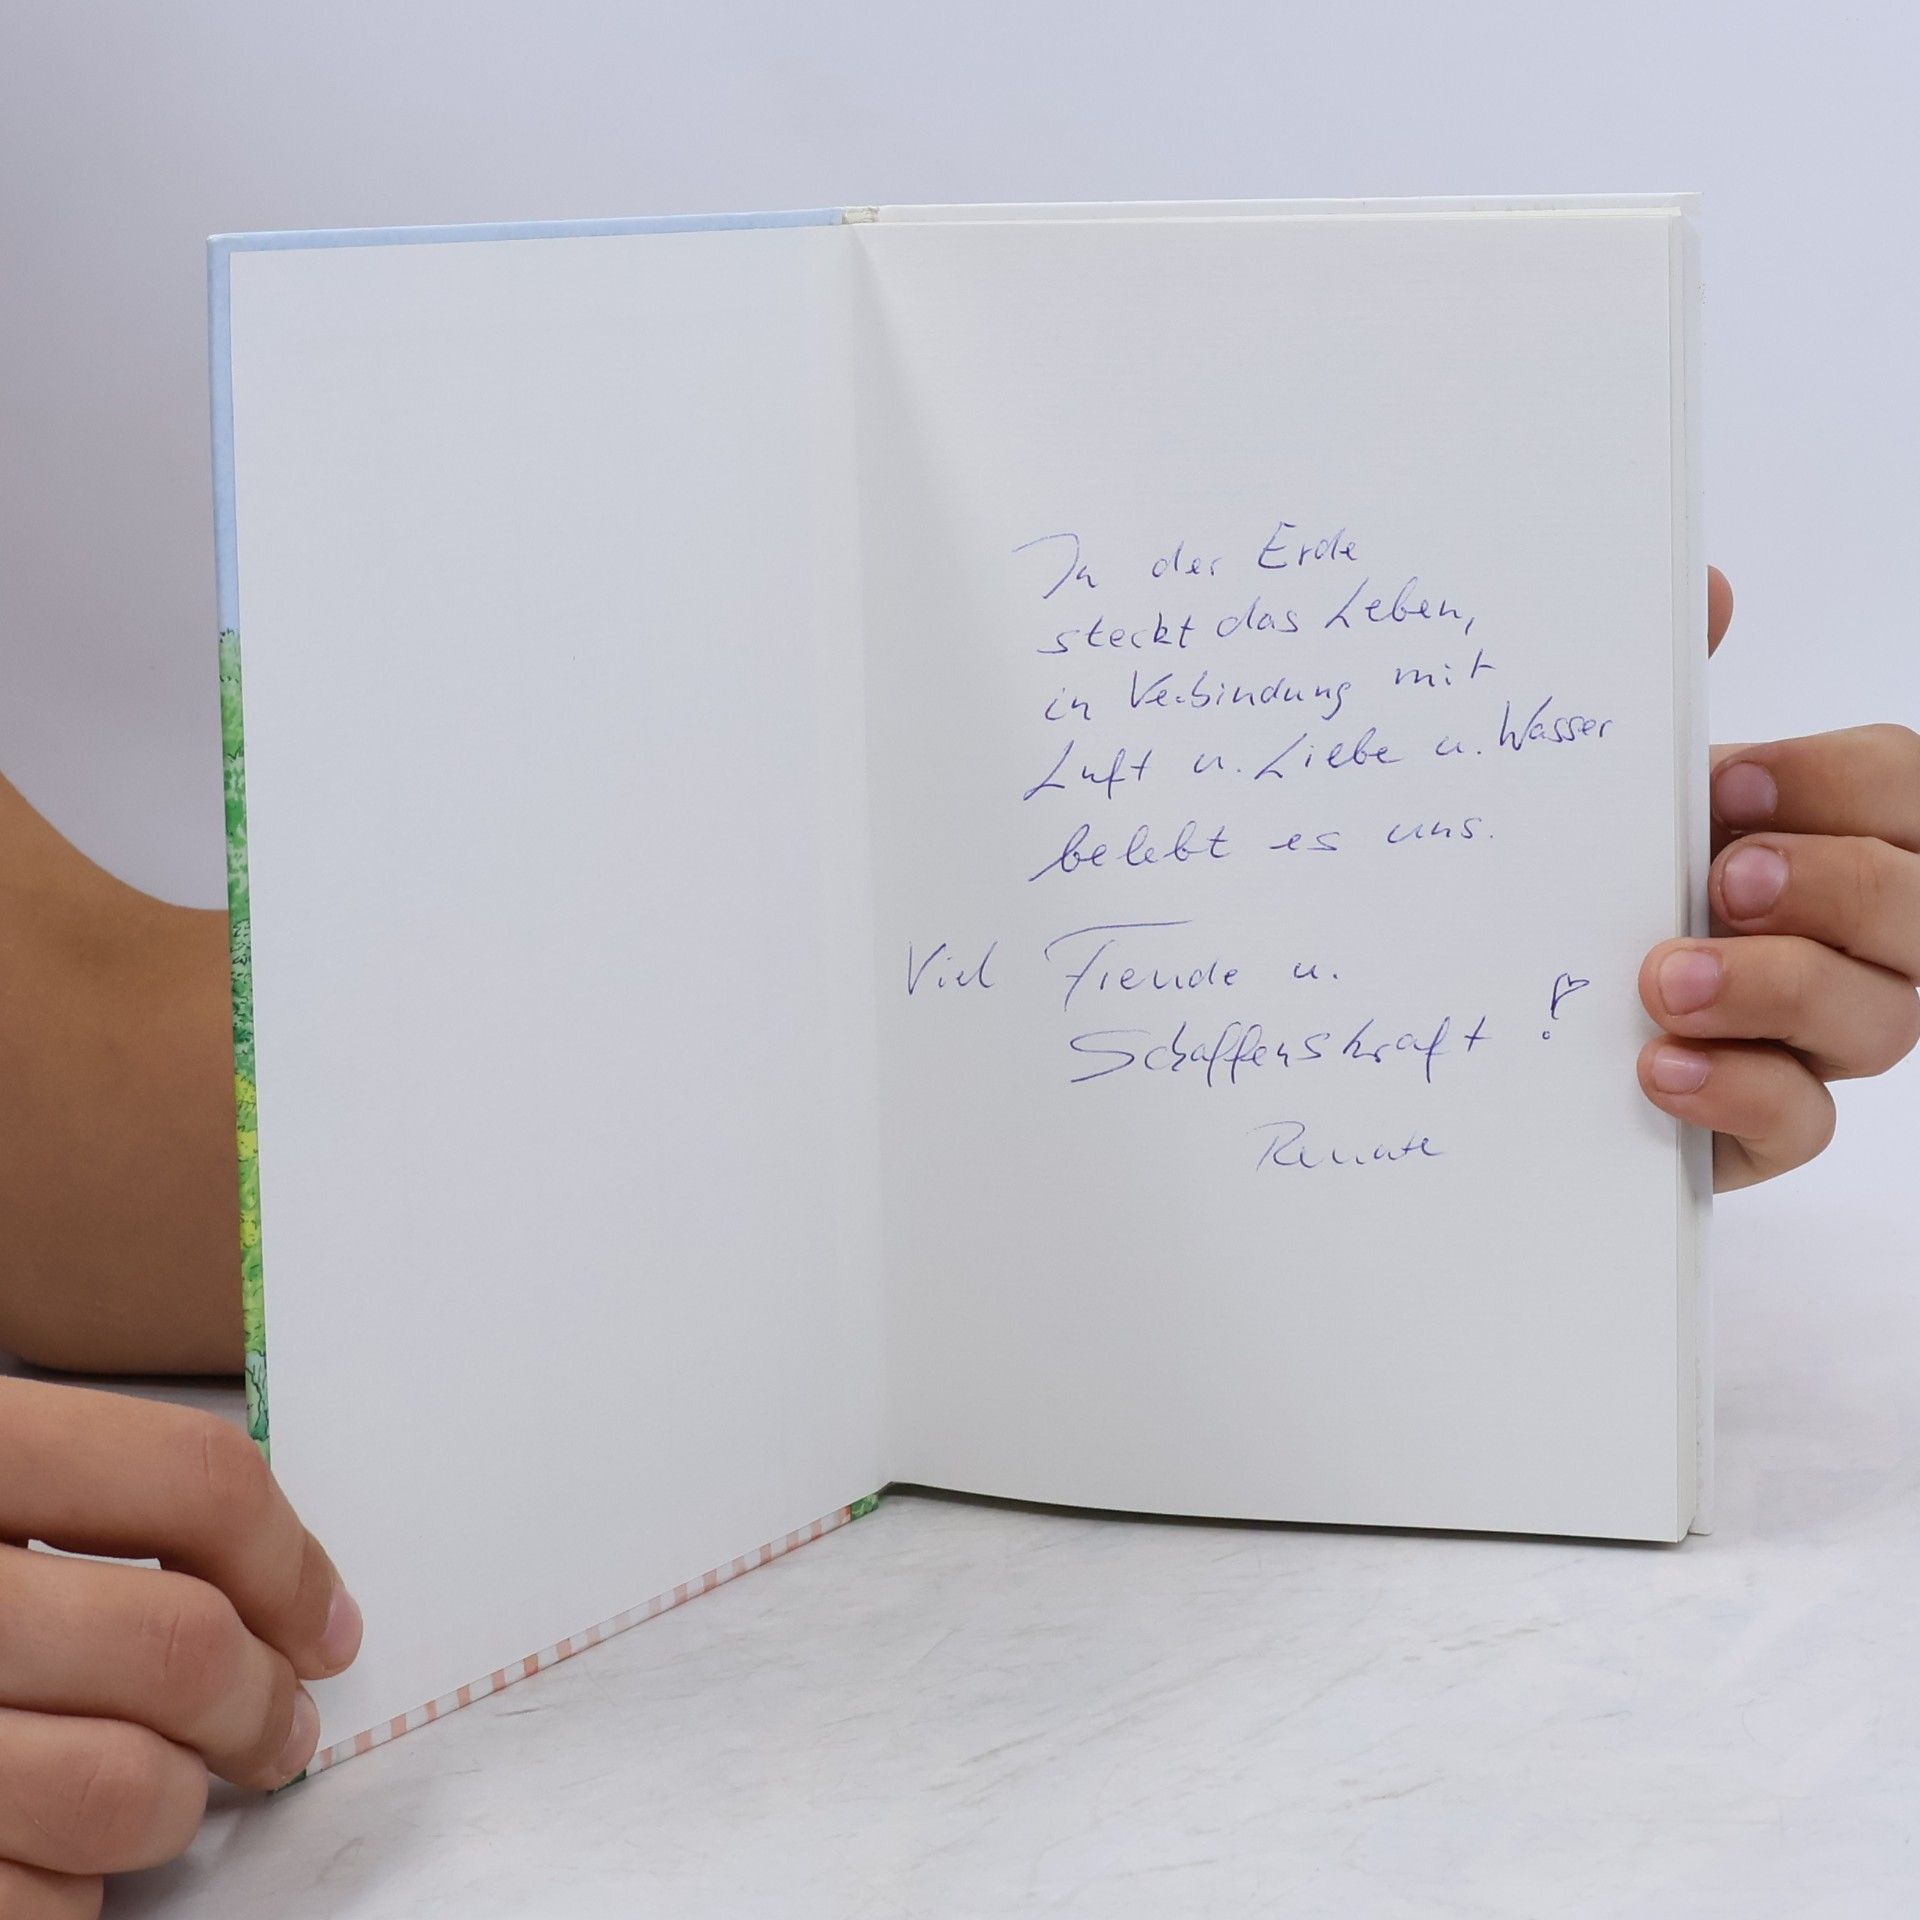 In der Erde
steckt das Leben,
in Verbindung mit
Luft u. Liebe u. Wasser
belebt es uns.
Viel Freude u.
Schaffenskraft !
Renate